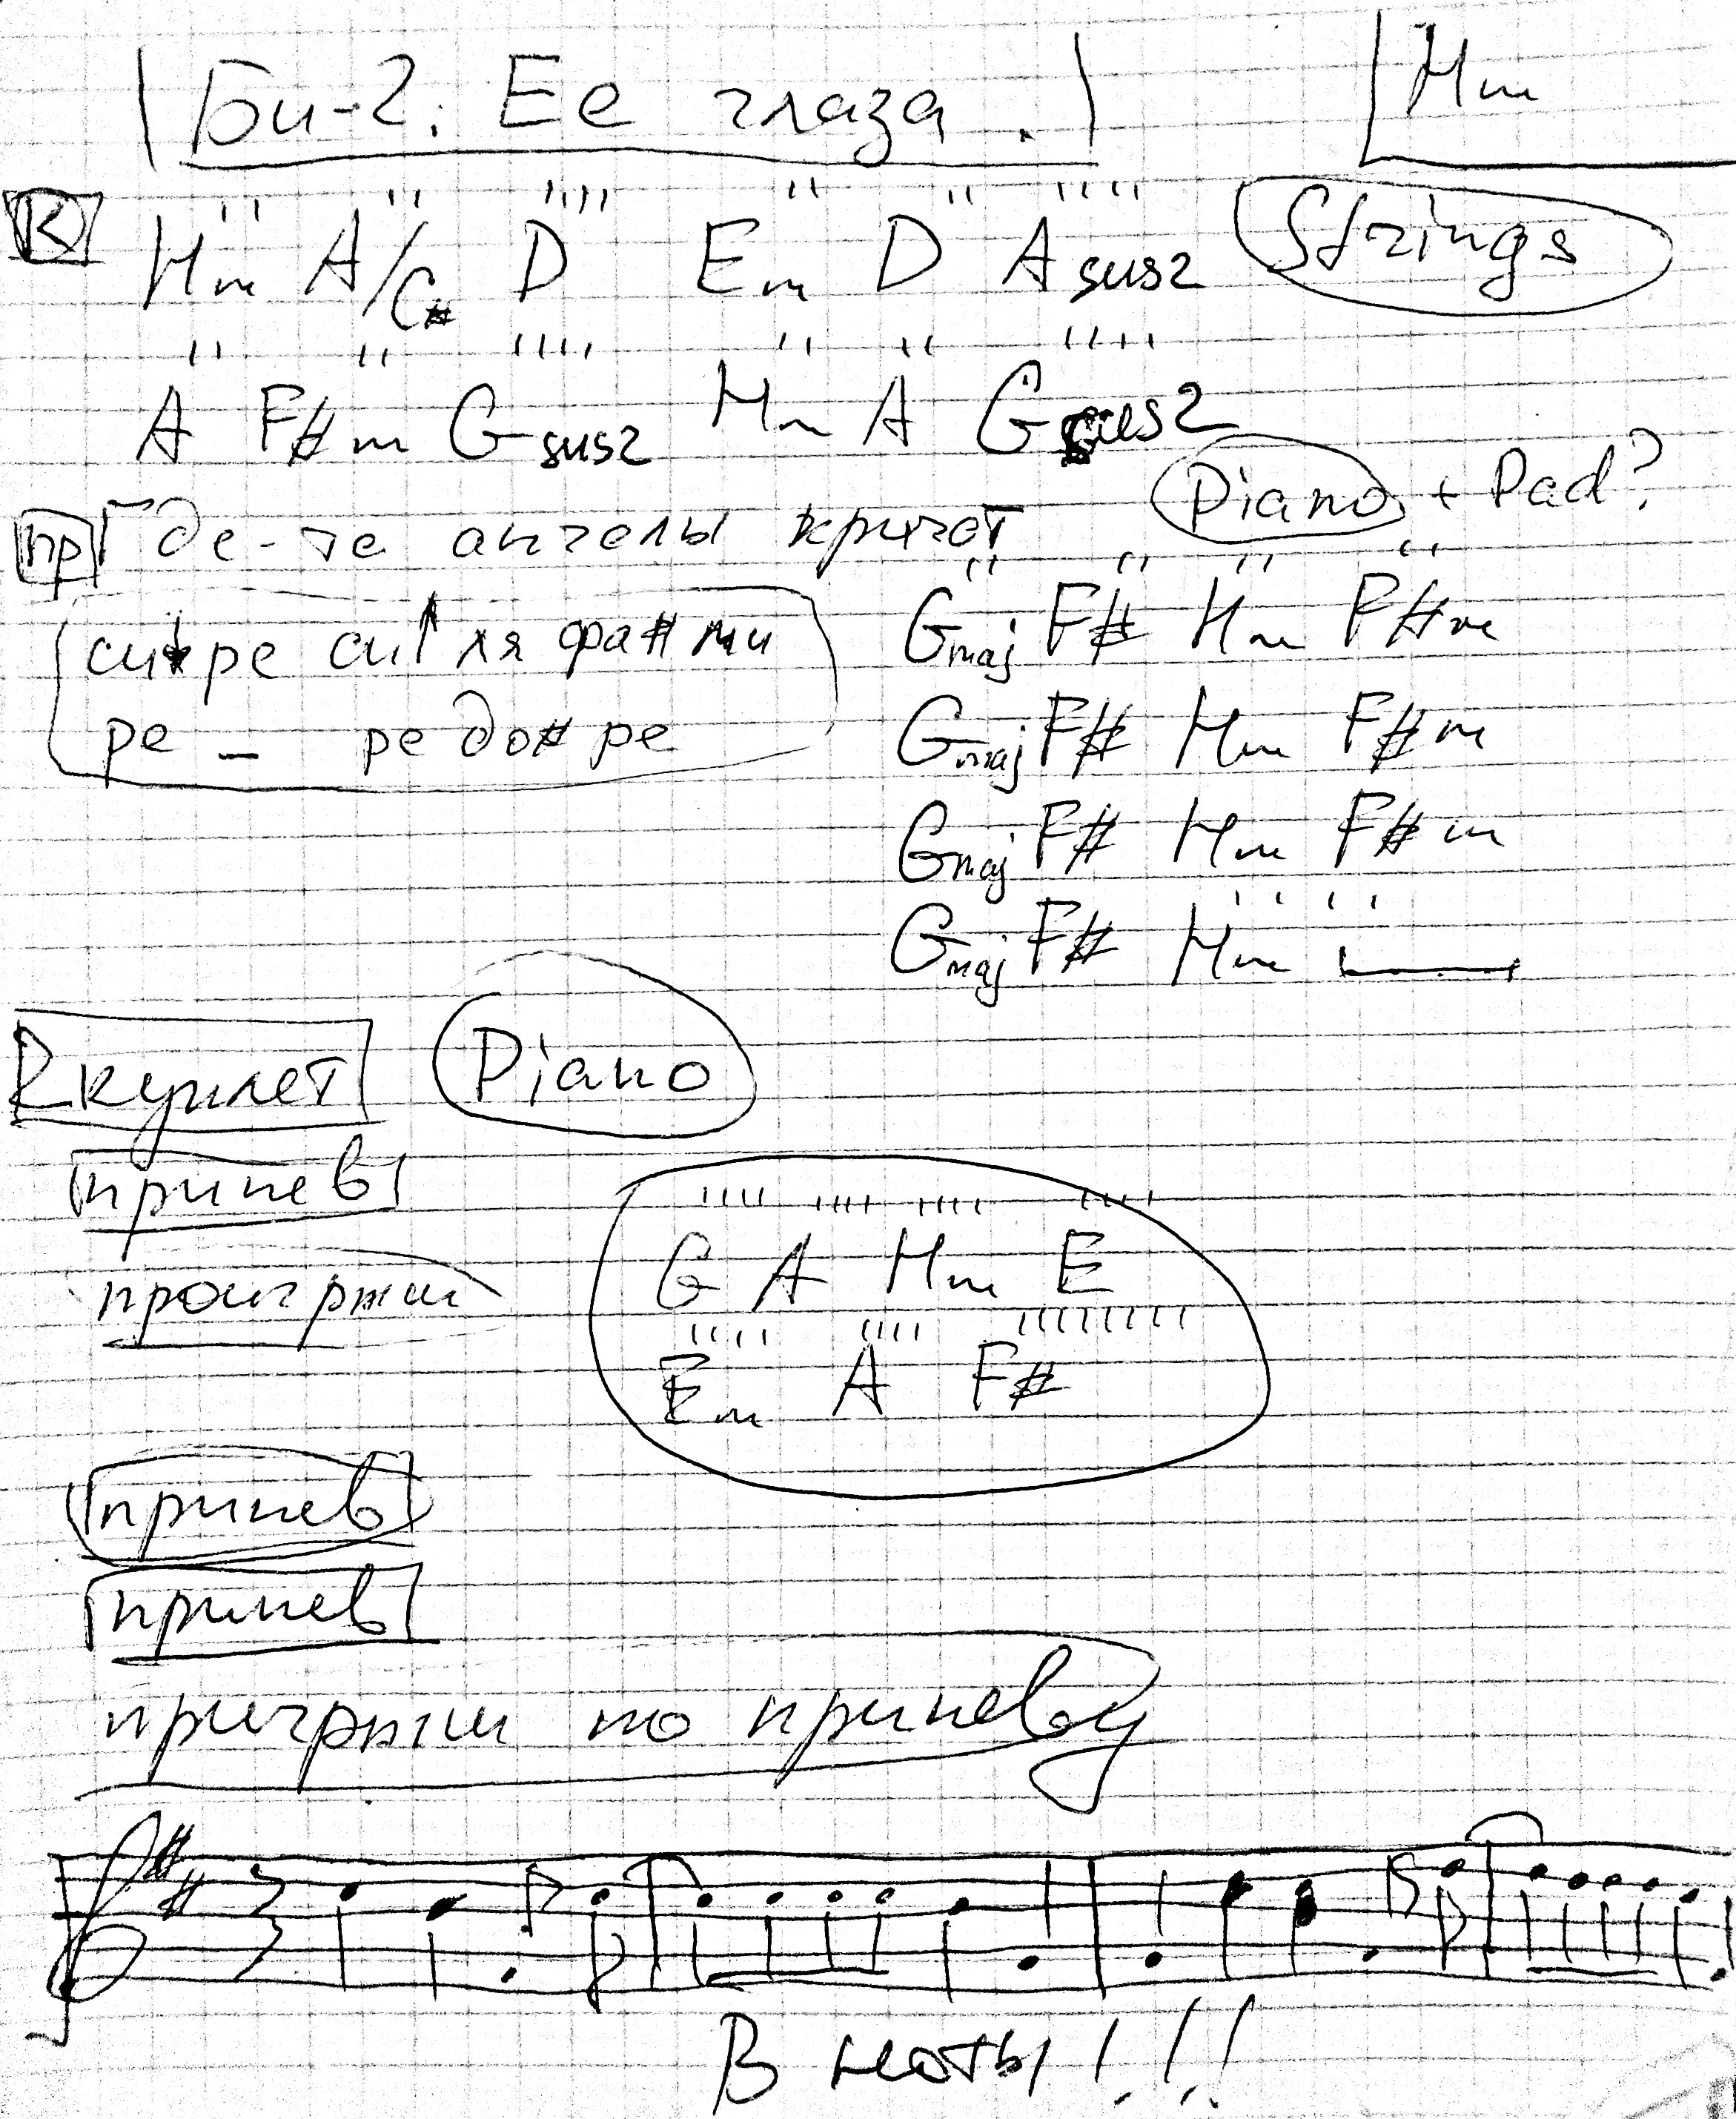 Би-2. Ее глаза. Hm
К Hm A/C# D Em D Asus2 Strings
A F#m Gsus2 Hm A Gsus2
Piano + Pad?
пр Где-то ангелы кричат
Gmaj F# Hm F#m
си↓ре си↑ля фа# ми
Gmaj F# Hm F#m
ре – ре до# ре
Gmaj F# Hm F#m
Gmaj F# Hm
2 куплет Piano
припев
проигрыш
G A Hm E
Em A F#
припев
припев
приигрыш по припеву
В ноты!!!